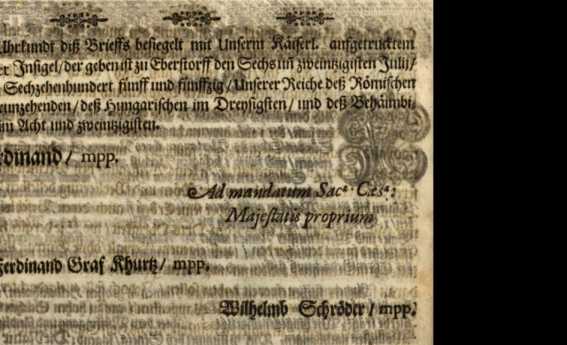 Uhrkundt diß Brieffs besiegelt mit Unserm Käiserl. auffgetrucktem
Insigel/ der geben ist zu Eberstorff den Sechs uñ zweintzigisten Julij/
Sechzehenhundert fünff und fünffzig/ Unserer Reiche deß Römischen
eunzehenden/ deß Hungarischen im Dreysigsten/ und deß Behaimbi
im Acht und zweintzigisten.
rdinand/ mpp.
Ad mandatum Sacᵃ. Cæsᵃ:
Majestatis proprium
Ferdinand Graf Khurtz/ mpp.
Wilhelmb Schröder/ mpp.